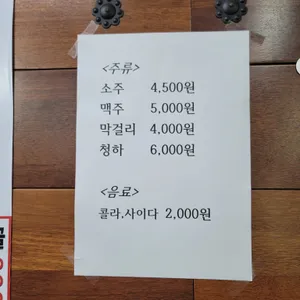 <주류>
소주 4,500원
맥주 5,000원
막걸리 4,000원
청하 6,000원
<음료>
콜라.사이다 2,000원